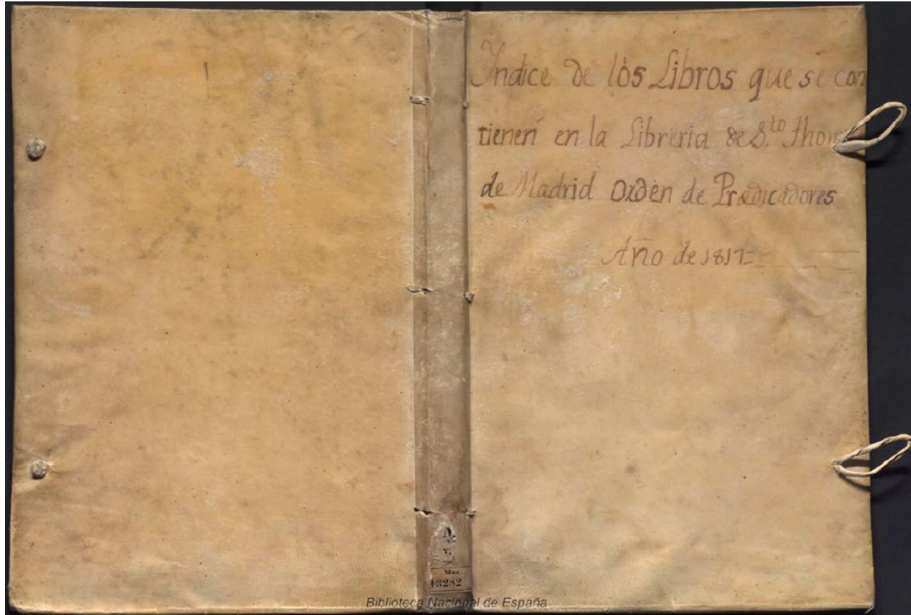 Yndice de los Libros que se con
tienen en la Libreria de S.to Thomas
de Madrid Orden de Predicadores
Año de 1817
Mss.
18282
Biblioteca Nacional de España